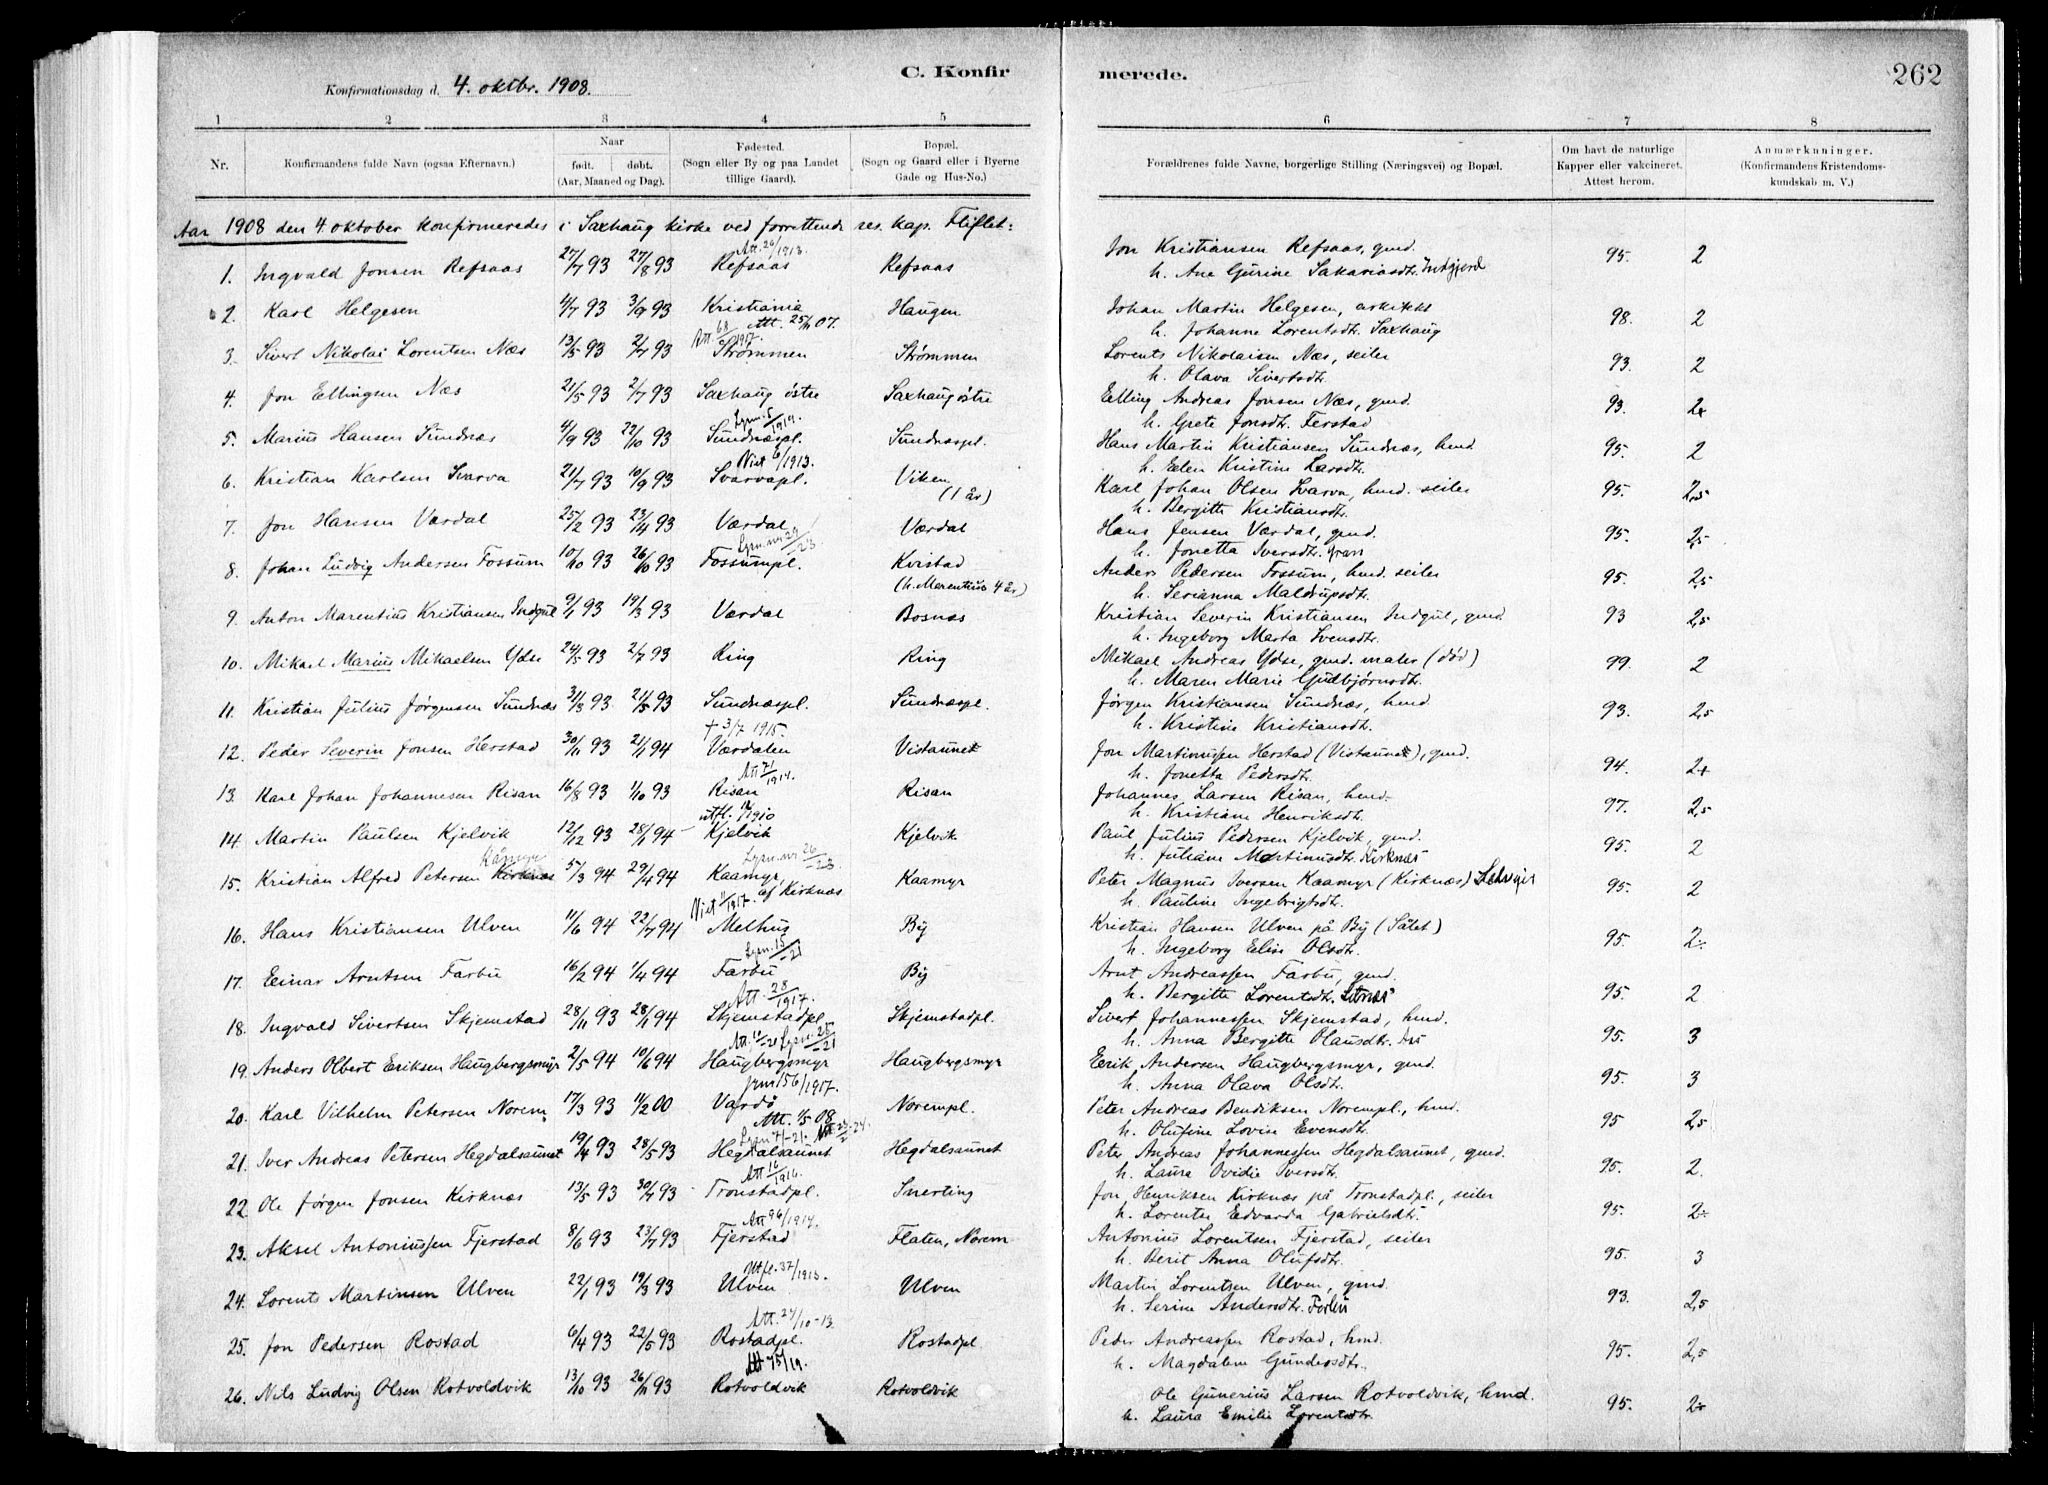 C. Konfirmerede.
262
Konfirmationsdag d. 4. oktbr. 1908.
1 2 3 4 5 6 7 8
Nr. Konfirmandens fulde Navn (ogsaa Efternavn.) Naar født. døbt. (Aar, Maaned og Dag). Fødested. (Sogn eller By og paa Landet tillige Gaard). Bopæl. (Sogn og Gaard eller i Byerne Gade og Hus-No.) Forældrenes fulde Navne, borgerlige Stilling (Næringsvei) og Bopæl. Om havt de naturlige Kapper eller vakcineret. Attest herom. Anmærkninger. (Konfirmandens Kristendoms- kundskab m. V.)
Aar 1908 den 4. oktober konfirmeredes i Saxhaug kirke ved forrettende res. kap. Fliflet:
Att. 26/1913.
1. Ingvald Jonsen Refsaas 27/7 93 27/8 93 Refsaas Refsaas Jon Kristiansen Refsaas, gmd. 95. 2
h. Ane Gurine Sakariasdtr. Indgjerd
2. Karl Helgesen 4/7 93 3/9 93 Kristiania Haugen Johan Martin Helgesen, arkitekt 98. 2
Att. 25/11 07. h. Johanne Lorentsdtr. Saxhaug
Att. 68/1917.
3. Sivert Nikolai Lorentsen Næs 13/5 93 2/7 93 Strømmen Strømmen Lorents Nikolaisen Næs, seiler 93. 2
h. Olava Sivertsdtr.
4. Jon Ellingsen Næs 21/5 93 2/7 93 Saxhaug østre Saxhaug østre Elling Andreas Jonsen Næs, gmd. 93. 2+
h. Grete Jonsdtr. Ferstad
Lysn. 5/1919.
5. Marius Hansen Sundnæs 4/9 93 22/10 93 Sundnæspl. Sundnæspl. Hans Martin Kristiansen Sundnæs, hmd. 95. 2
h. Elen Kristine Larsdtr.
Viet 6/1913.
6. Kristian Karlsen Svarva 21/7 93 10/9 93 Svarvapl. Viken (1 år) Karl Johan Olsen Svarva, hmd. seiler 95. 2,5
h. Bergitte Kristiansdtr.
7. Jon Hansen Værdal 25/2 93 23/4 93 Værdal Værdal Hans Jensen Værdal, gmd. 95. 2,5
h. Jonetta Iversdtr. Gran
Lysn. nr. 29/-23
8. Johan Ludvig Andersen Fossum 10/10 93 26/10 93 Fossumpl. Kvistad Anders Pedersen Fossum, hmd. seiler 95. 2,5
(h. Marentius 4 år) h. Serianna Maldrupsdtr.
9. Anton Marentius Kristiansen Indgul 9/1 93 19/3 93 Værdal Bosnæs Kristian Severin Kristiansen Indgul, gmd. 93 2,5
h. Ingeborg Marta Svensdtr.
10. Mikael Marius Mikaelsen Ydse 24/5 93 2/7 93 Ring Ring Mikael Andreas Ydse, gmd. maler (død) 99. 2
h. Maren Marie Gudbjørnsdtr.
11. Kristian Julius Jørgensen Sundnæs 31/3 93 21/5 93 Sundnæspl. Sundnæspl. Jørgen Kristiansen Sundnæs, hmd. 93. 2,5
h. Kristine Kristiansdtr.
+ 3/7 1915.
12. Peder Severin Jonsen Herstad 30/11 93 21/1 94 Værdalen Vistaunet Jon Martinussen Herstad (Vistaunet), gmd. 94. 2+
h. Jonetta Pedersdtr.
Att 71/1914.
13. Karl Johan Johannesen Risan 16/8 93 1/10 93 Risan Risan Johannes Larsen Risan, hmd. 97. 2,5
h. Kristiane Henriksdtr.
utfl. 12/1910
14. Martin Paulsen Kjelvik 12/12 93 28/1 94 Kjelvik Kjelvik Paul Julius Pedersen Kjelvik, gmd. 95. 2
h. Juliane Martinusdtr. Kirknæs
Lysn. nr. 26/-23
15. Kristian Alfred Petersen Kirknæs Kåmyr 5/3 94 29/4 94 Kaamyr, af Kirknæs Kaamyr Peter Magnus Iversen Kaamyr (Kirknæs) 95. 2
h. Pauline Ingebrigtsdtr.
Viet 11/1917.
16. Hans Kristiansen Ulven 11/6 94 22/7 94 Melhus By Kristian Hansen Ulven på By (Sålet) 95. 2÷
h. Ingeborg Elise Olsdtr.
Lysn. 15/-21
17. Einar Arntsen Farbu 16/2 94 1/4 94 Farbu By Arnt Andreassen Farbu, gmd. 95. 2
h. Bergitte Lorentsdtr. Letnæs
Att. 28/1917.
18. Ingvald Sivertsen Skjemstad 28/11 93 28/1 94 Skjemstadpl. Skjemstadpl. Sivert Johannessen Skjemstad, hmd. 95. 3
h. Anna Bergitte Olausdtr. Ås
Lysn. 25/-21
19. Anders Olbert Eriksen Haugbergsmyr 2/5 94 10/6 94 Haugbergsmyr Haugbergsmyr Erik Andersen Haugbergsmyr, gmd. 95. 3
h. Anna Olava Olsdtr.
Lysn 156/1917.
20. Karl Vilhelm Petersen Norem 17/3 93 11/2 00 Vardø Norempl. Peter Andreas Bendiksen Norempl., hmd. 95 2,5
Att. 1/5 08 h. Olufine Lovise Evensdtr.
Lysn 7/-21.
21. Iver Andreas Petersen Hegdalsaunet 19/4 93 28/5 93 Hegdalsaunet Hegdalsaunet Peter Andreas Johannessen Hegdalsaunet, gmd. 95. 2.
h. Laura Ovidie Iversdtr.
Att 16/1916.
22. Ole Jørgen Jonsen Kirknæs 13/5 93 30/7 93 Tronstadpl. Snerting Jon Henriksen Kirknæs på Tronstadpl., seiler 95. 2÷
h. Lorentse Edvarda Gabrielsdtr.
Att 96/1914.
23. Aksel Antoniussen Fjerstad 8/6 93 23/7 93 Fjerstad Flaten, Norem Antonius Lorentsen Fjerstad, seiler 95. 3
h. Berit Anna Olufsdtr.
Utfl. 37/1913.
24. Lorents Martinsen Ulven 22/1 93 19/3 93 Ulven Ulven Martin Lorentsen Ulven, gmd. 93. 2,5
h. Serine Andersdtr. Farbu
Att. 24/10-13.
25. Jon Pedersen Rostad 6/4 93 22/5 93 Rostadpl. Rostadpl. Peder Andreassen Rostad, hmd. 95. 2,5
h. Magdalene Gundersdtr.
Att 75/19.
26. Nils Ludvig Olsen Rotvoldvik 13/10 93 26/11 93 Rotvoldvik Rotvoldvik Ole Gunerius Larsen Rotvoldvik, hmd. 95. 2÷
h. Laura Emilie Lorentsdtr.